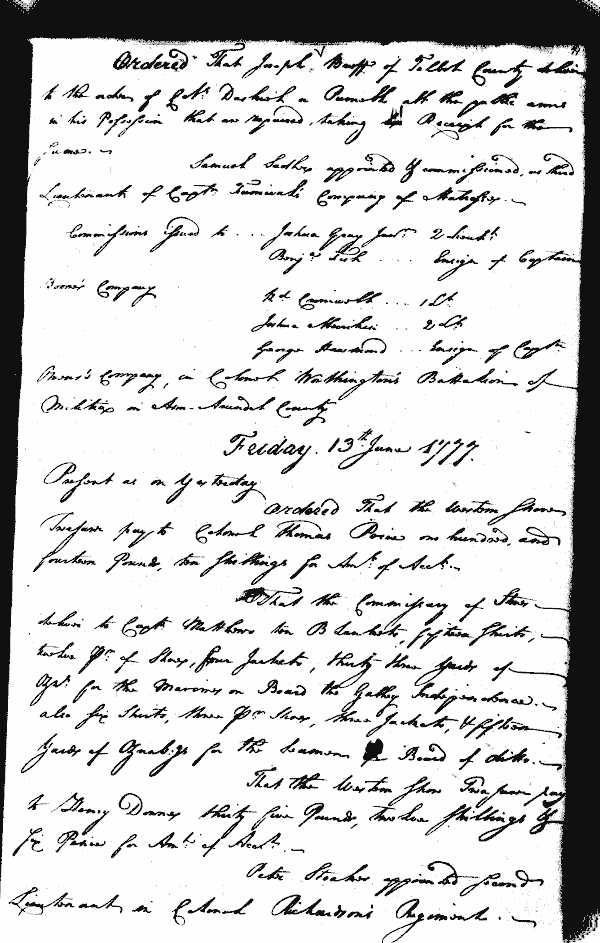 Ordered That Joseph Bruff of Talbot County deliver
to the order of Col. a all the public arms
in his Possession that are repaired, taking Receipt for the
same.
Samuel appointed & commissioned, as third
Lieutenant of Capt. Company of Matrosses.
Commissions issued to ... Joshua Gray Junr. 2 Lieut.
Benja. Fish .... Ensign of Captain
Boone's Company
.... 1 Lt.
Joshua .... 2 Lt.
George Hammond ... Ensign of Capt.
Company, in Colonel Worthington's Battalion of
Militia in Ann-Arundel County
Friday. 13th June 1777.
Present as on Yesterday
Ordered That the Western Shore
Treasurer pay to Colonel Thomas Price one hundred, and
fourteen Pounds, ten Shillings for Amt. of Acct.
That the Commissary of Stores
deliver to Capt. Matthews ten Blankets, fifteen Shirts,
twelve Pr. of Shoes, four Jackets, thirty three Yards of
Ozn. for the Marines on Board the Galley Independence.
also six Shirts, three Pr. Shoes, three Jackets, & fifteen
Yards of Oznabrgs for the Seamen Board of ditto.
That the Western Shore Treasurer pay
to Henry Downes thirty five Pounds, twelve Shillings &
six Pence for Amt. of Acct.
Peter appointed second
Lieutenant in Colonel Richardson's Regiment.